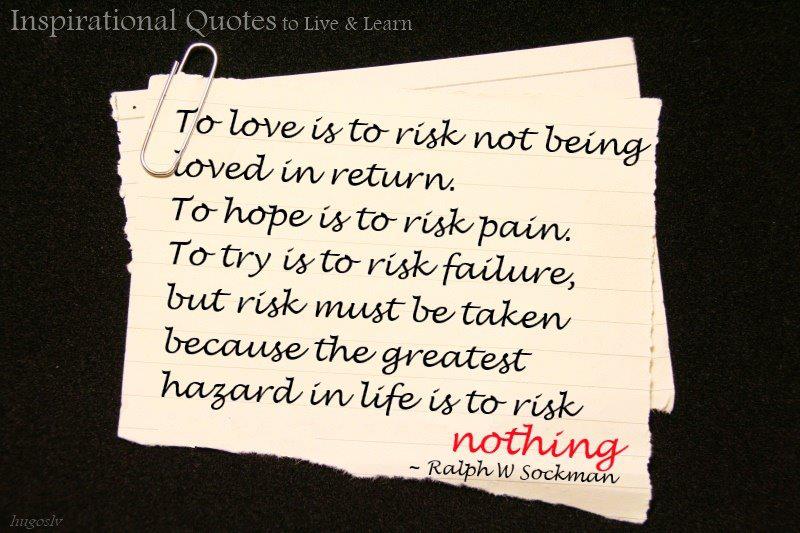 Inspirational Quotes to Live & Learn
To love is to risk not being
loved in return.
To hope is to risk pain.
To try is to risk failure,
but risk must be taken
because the greatest
hazard in life is to risk
nothing
~ Ralph W Sockman
hugoslv